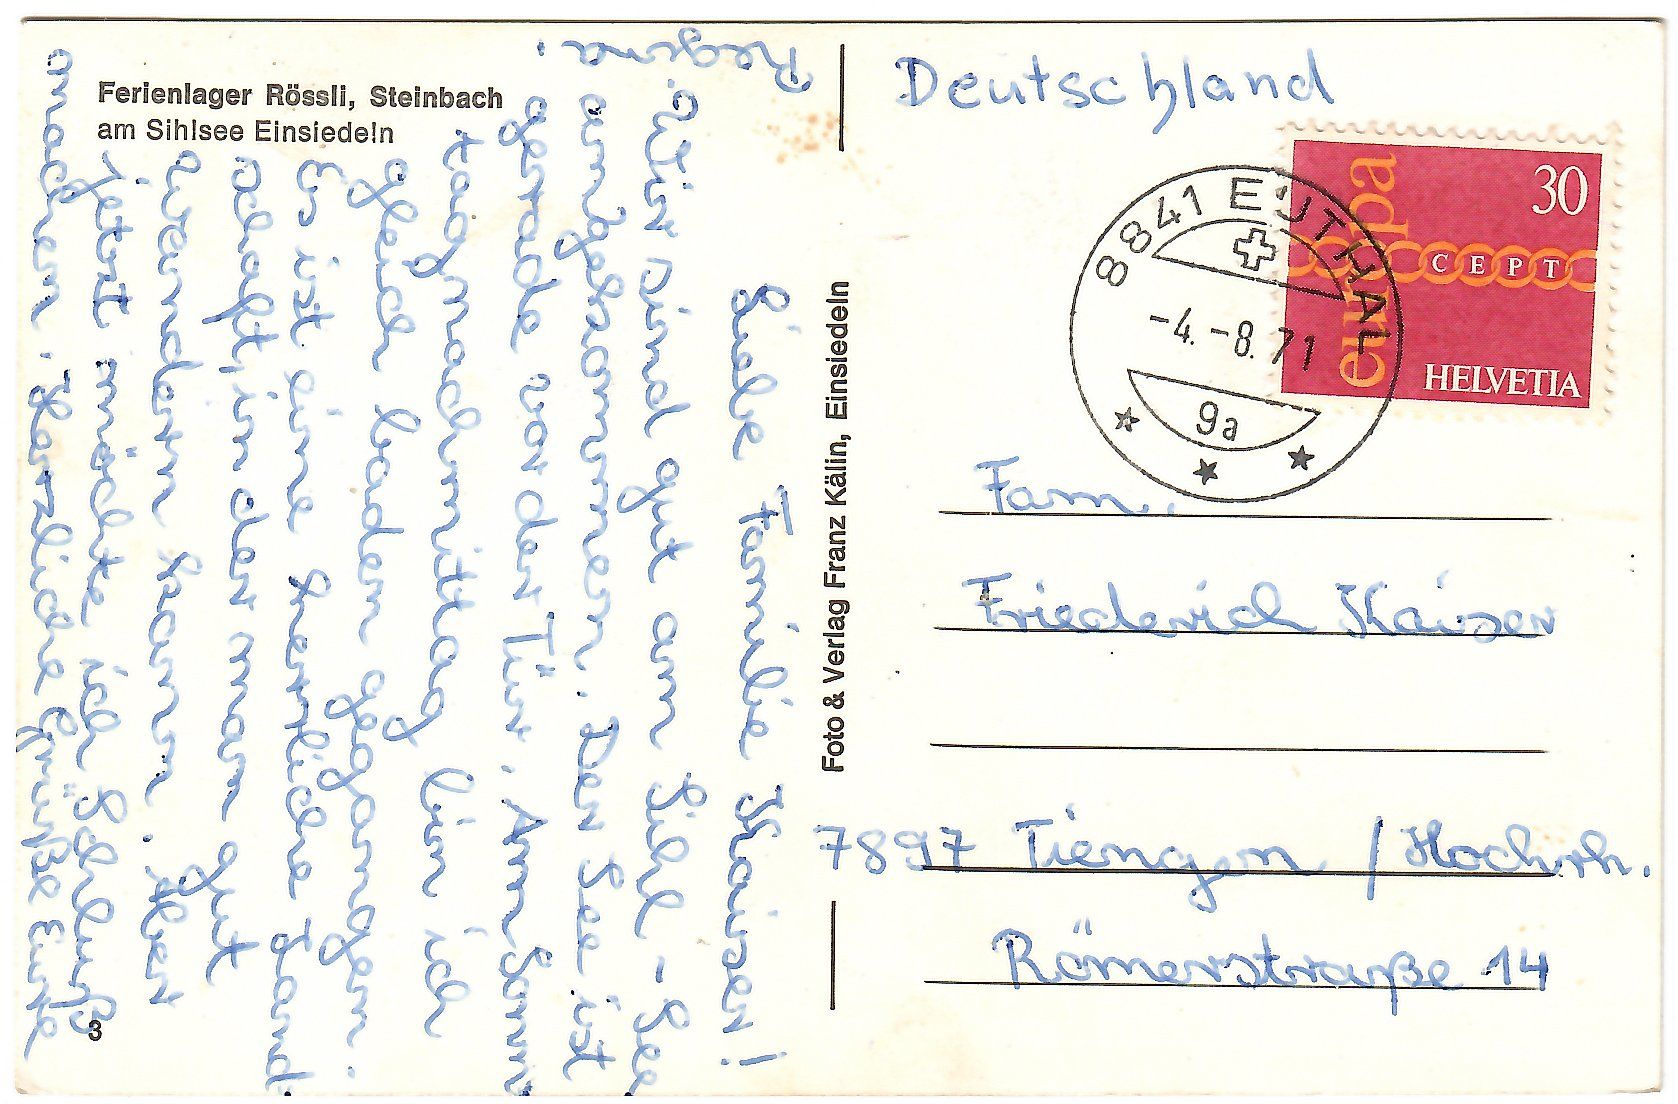 Ferienlager Rössli, Steinbach
am Sihlsee Einsiedeln
Liebe Familie Kaiser!
Wir sind gut am Sihl-See
angekommen. Der See ist
gerade vor der Tür. Am Sonn-
tagnachmittag bin ich
gleich baden gegangen.
Es ist eine herrliche Land-
schaft, in der man gut
wandern kann. Aber
jetzt möchte ich Schluß
machen. Herzliche Grüße Eure
Regina.
3
Foto & Verlag Franz Kälin, Einsiedeln
Deutschland
30
europa
CEPT
HELVETIA
8841 EUTHAL
-4.-8.71
9a
Fam.
Friederich Kaiser
7897 Tiengen / Hochrh.
Römerstraße 14